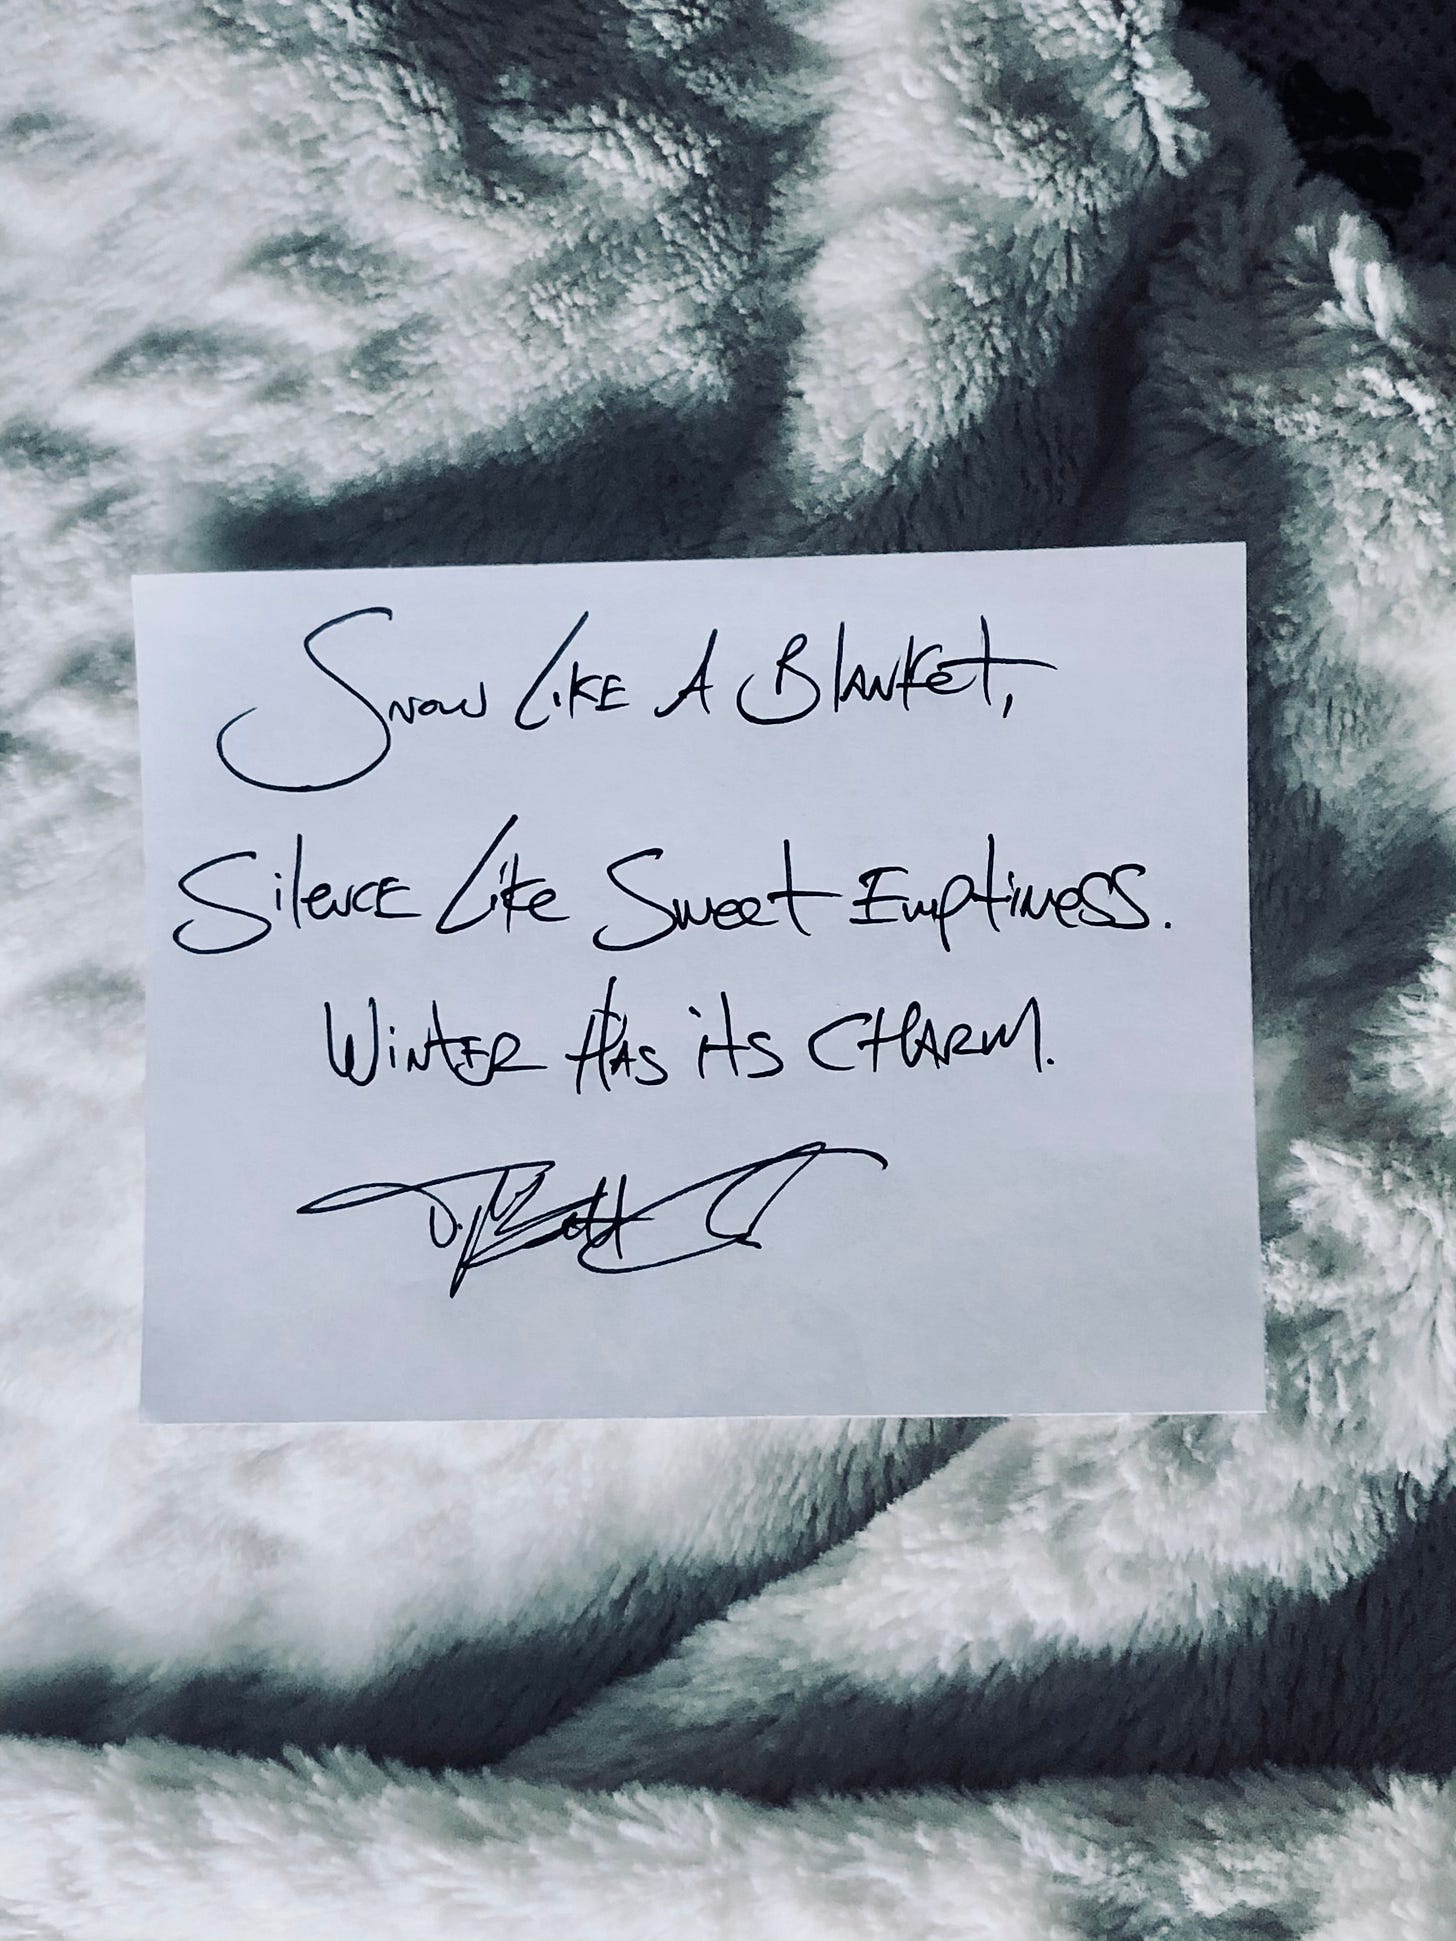 Snow Like A Blanket,
Silence Like Sweet Emptiness.
Winter Has its CHARM.